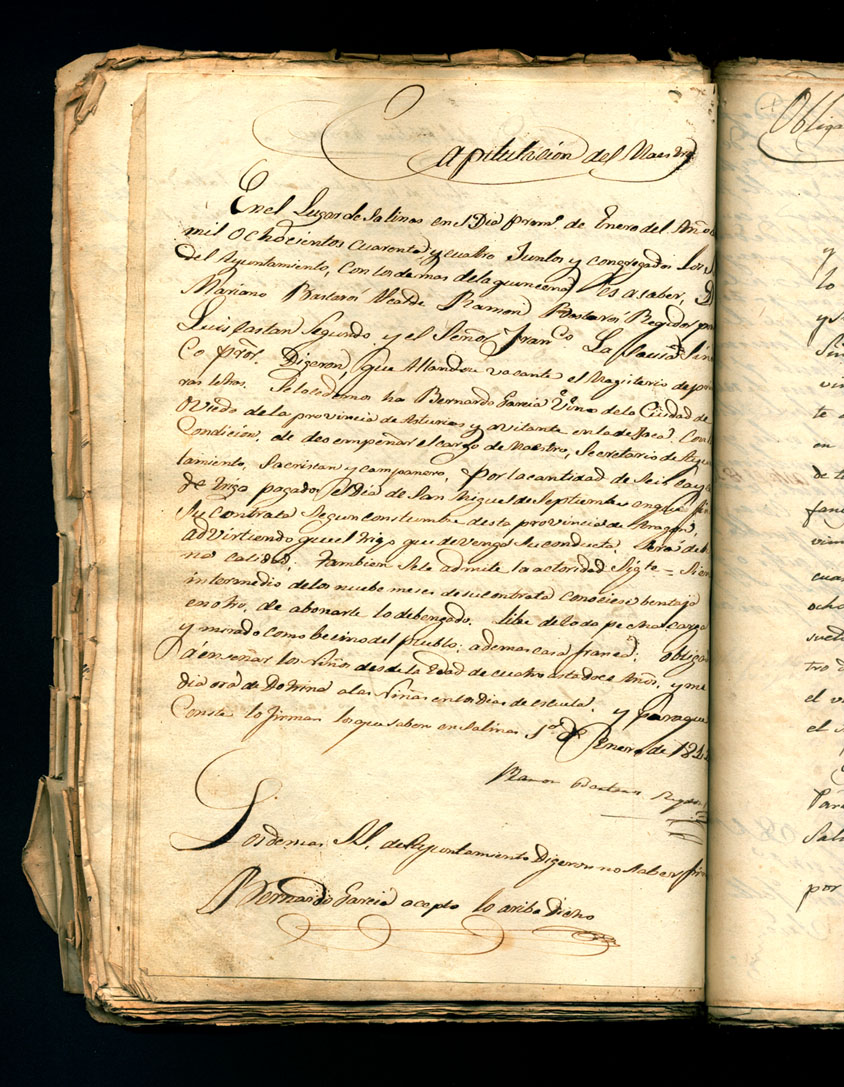 Capitulacion del Maestro
En el Lugar de Salinas en el Dia prim.º de Enero del Año
mil ochocientos cuarenta y cuatro Juntos y congregados Los
del Ayuntamiento, con los demas de la quincena, Es a saber, D
Mariano Bastarós Alcalde Ramon Bastaros Regidor pri
Luis Castan Segundo y el Señor Fran.co La Sin
co pro.r Digeron, que allandose vacante el Magisterio de pri
ras letras. Se lo damos ha Bernardo Garcia de la Ciudad de
Oviedo de la provincia de Asturias y avitante en la de Jaca. Con la
Condicion, de desempeñar el cargo de Maestro, Secretario de Ayun
tamiento, Sacristan y campanero, por la cantidad de Seis
de trigo pagados el Dia de San Miguel de Septiembre en que
Su contrata Segun constumbre desta provincia de Aragon,
advirtiendo que el trigo que devenga Su conducta, Será de
na calidad. Tambien Se le admite la
intermedio de los nuebe meses de su contrata conociese bentaja
en otro, de abonarle lo debengado. libre de toda pecha, carga
y mirado como becino del pueblo: ademas casa franca: obligan
a enseñar los Niños desde la Edad de cuatro asta doce Años, y me
dia ora de Dotrina a las Niñas en los dias de escuela. y para que
Conste lo firman los que saben en Salinas 1º de Enero de 184
Ramon Bastaros Regidor
Los demas SS. de Ayuntamiento Digeron no Saber fir
Bernardo Garcia acepto lo ariba Dicho
Obliga
y
lo
y
Sin
vin
te
en
de
fan
vim
cua
ocho
suel
tro
el v
el
Para
Sal
por